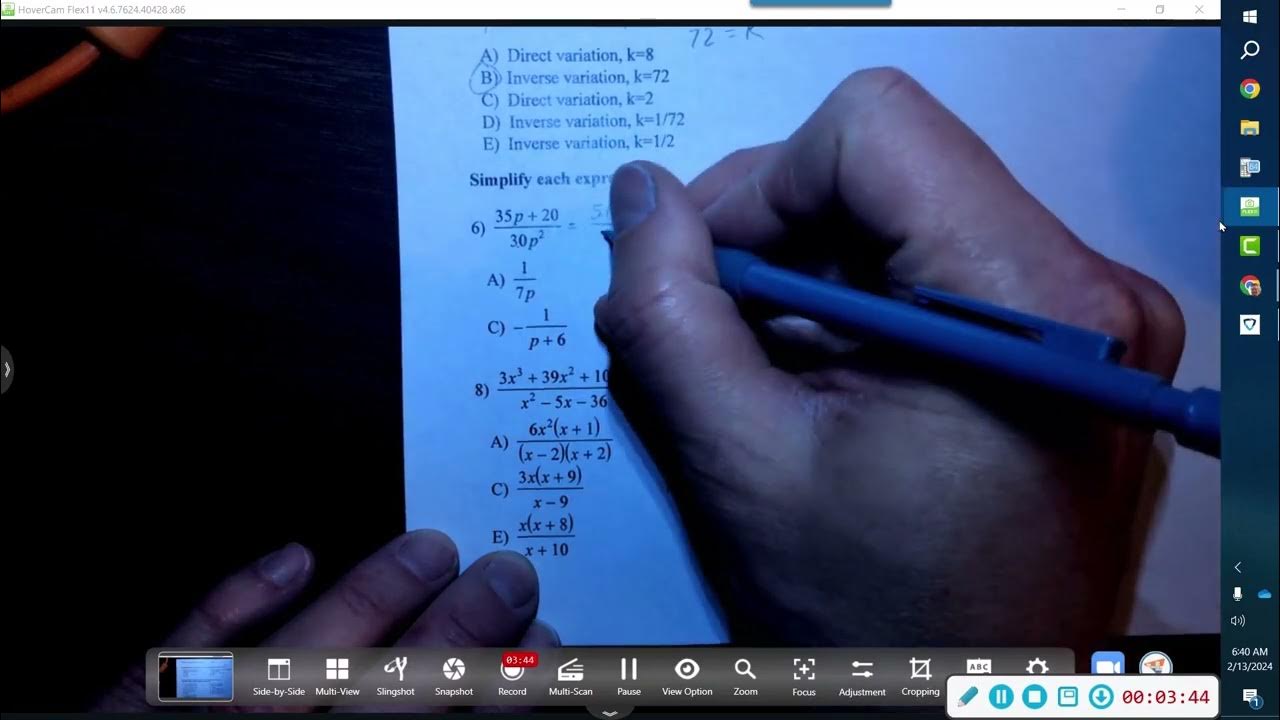 HoverCam Flex11 v4.6.7624.40428 x86
72 = K
A) Direct variation, k=8
B) Inverse variation, k=72
C) Direct variation, k=2
D) Inverse variation, k=1/72
E) Inverse variation, k=1/2
Simplify each
6) (35p + 20)/(30p²) =
A) 1/(7p)
C) -1/(p + 6)
8) (3x³ + 39x² +)/(x² − 5x − 36)
A) 6x²(x + 1)/((x − 2)(x + 2))
C) 3x(x + 9)/(x − 9)
E) x(x + 8)/(x + 10)
03:44
ABC
Side-by-Side Multi-View Slingshot Snapshot Record Multi-Scan Pause View Option Zoom Focus Adjustment Cropping
00:03:44
6:40 AM
2/13/2024